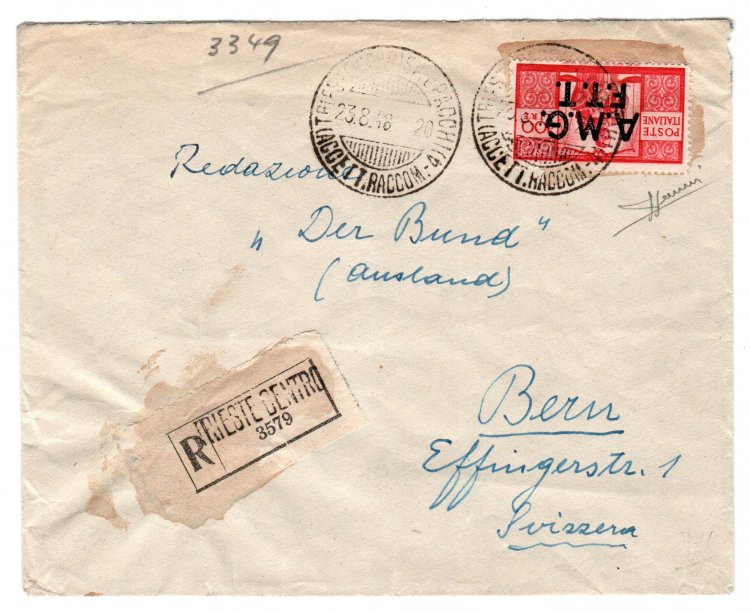 3349
TRIESTE
PACCHI
23.8.48 20
(ACCETT. RACCOM. 4)
TRIES
23.8.
(ACCETT. RACCOM.
POSTE
ITALIANE
LIRE
A.M.G.
F.T.T.
Redazione
„Der Bund“
(Ausland)
R
TRIESTE CENTRO
3579
Bern
Effingerstr. 1
Svizzera